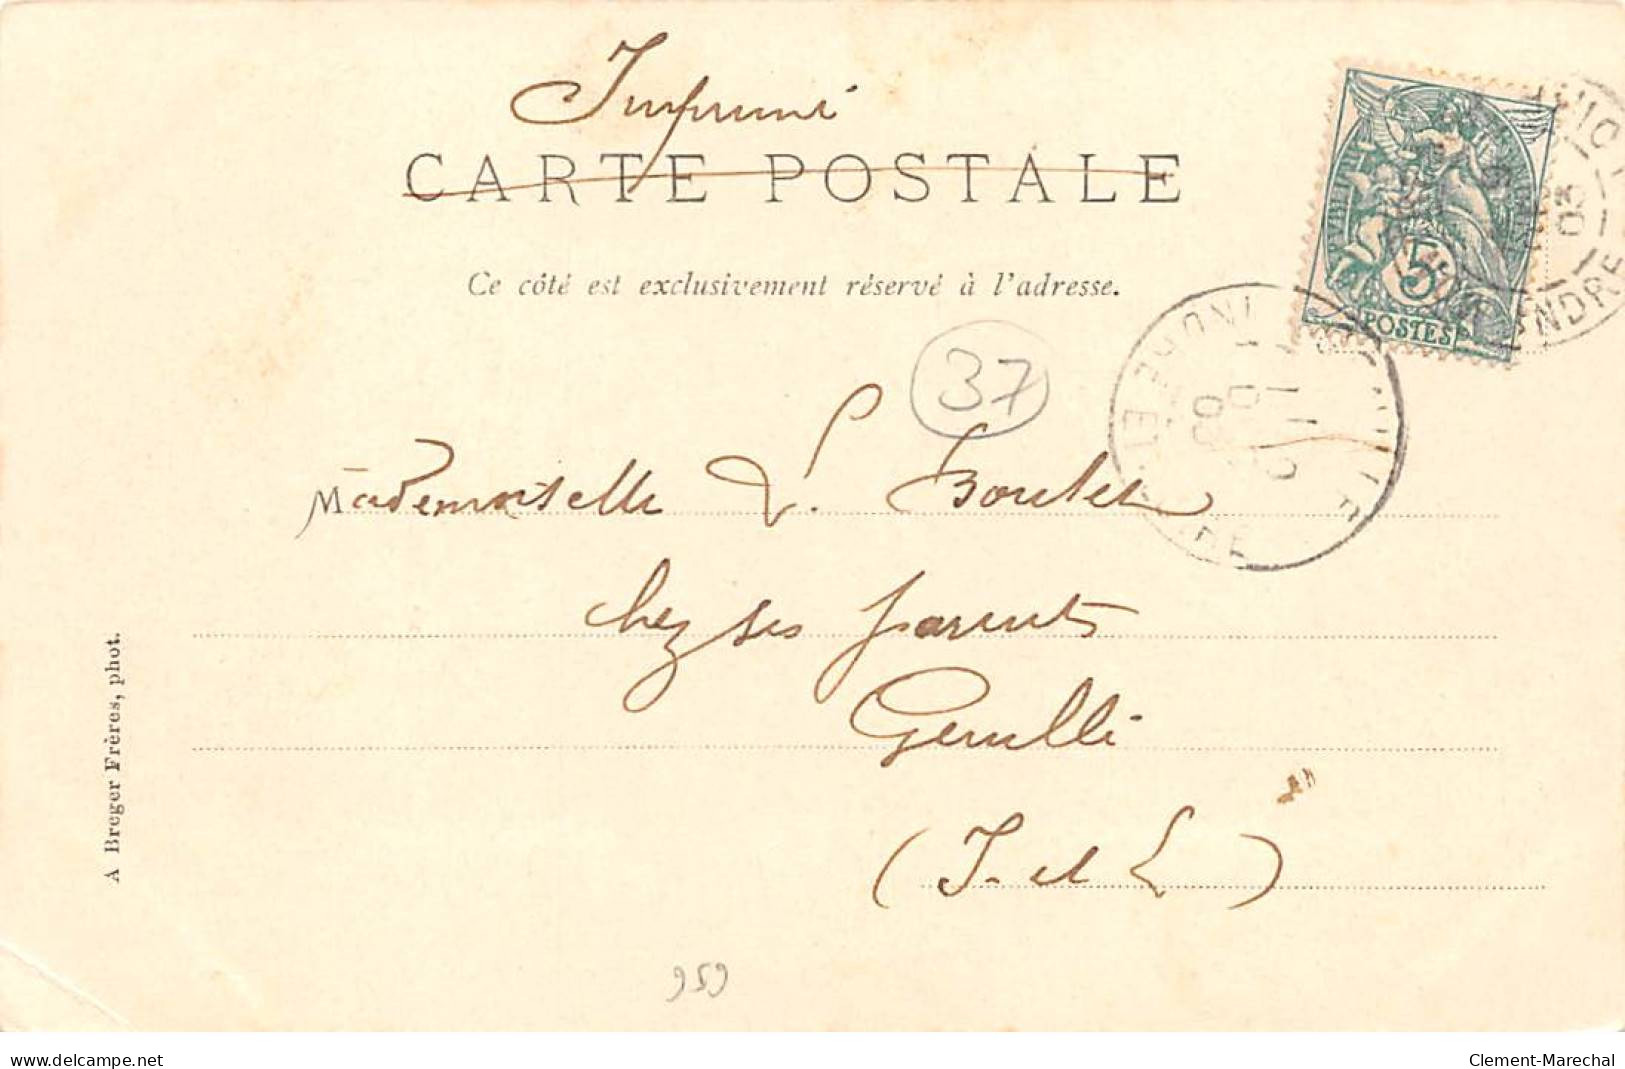 Imprimé
CARTE POSTALE
Ce côté est exclusivement réservé à l'adresse.
5
POSTES
INDRE
03
37
INDRE ET
03
Mademoiselle L. Boutet
chez ses parents
Genillé
(I. et L)
A Breger Frères, phot.
959
www.delcampe.net
Clement-Marechal